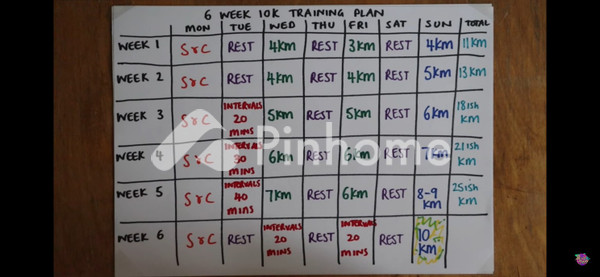 6 WEEK 10K TRAINING PLAN
MON TUE WED THU FRI SAT SUN TOTAL
WEEK 1 S&C REST 4KM REST 3KM REST 4KM 11KM
WEEK 2 S&C REST 4KM REST 4KM REST 5KM 13KM
WEEK 3 S&C INTERVALS 20 MINS 5KM REST 5KM REST 6KM 18ISH KM
WEEK 4 S&C INTERVALS 30 MINS 6KM REST 6KM REST 7KM 21ISH KM
WEEK 5 S&C INTERVALS 40 MINS 7KM REST 6KM REST 8-9 KM 25ISH KM
WEEK 6 S&C REST INTERVALS 20 MINS REST INTERVALS 20 MINS REST 10 KM
Pinhome